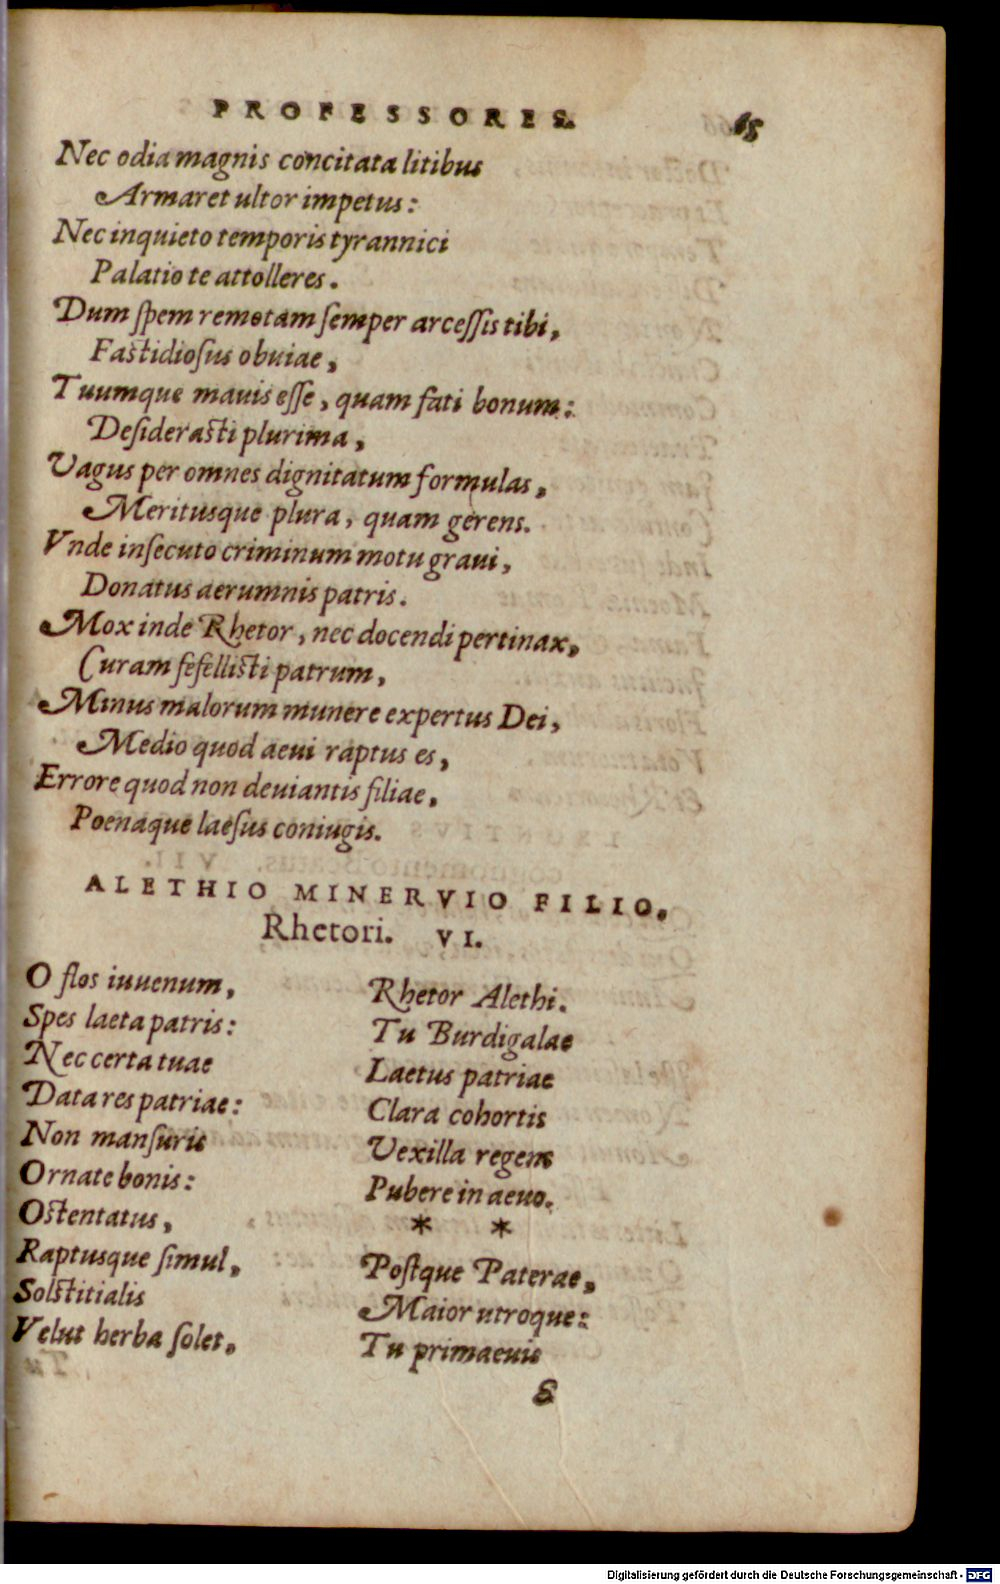 PROFESSORES. 65
Nec odia magnis concitata litibus
Armaret ultor impetus:
Nec inquieto temporis tyrannici
Palatio te attolleres.
Dum spem remotam semper arcessis tibi,
Fastidiosus obuiae,
Tuumque mauis esse, quam fati bonum:
Desiderasti plurima,
Vagus per omnes dignitatum formulas,
Meritusque plura, quam gerens.
Vnde insecuto criminum motu graui,
Donatus aerumnis patris.
Mox inde Rhetor, nec docendi pertinax,
Curam fefellisti patrum,
Minus malorum munere expertus Dei,
Medio quod aeui raptus es,
Errore quod non deuiantis filiae,
Poenaque laesus coniugis.
ALETHIO MINERVIO FILIO,
Rhetori. VI.
O flos iuuenum,
Spes laeta patris:
Nec certa tuae
Data res patriae:
Non mansuris
Ornate bonis:
Ostentatus,
Raptusque simul,
Solstitialis
Velut herba solet.
Rhetor Alethi.
Tu Burdigalae
Laetus patriae
Clara cohortis
Vexilla regens
Pubere in aeuo.
* *
Postque Paterae,
Maior utroque:
Tu primaeuis
Digitalisierung gefördert durch die Deutsche Forschungsgemeinschaft - DFG